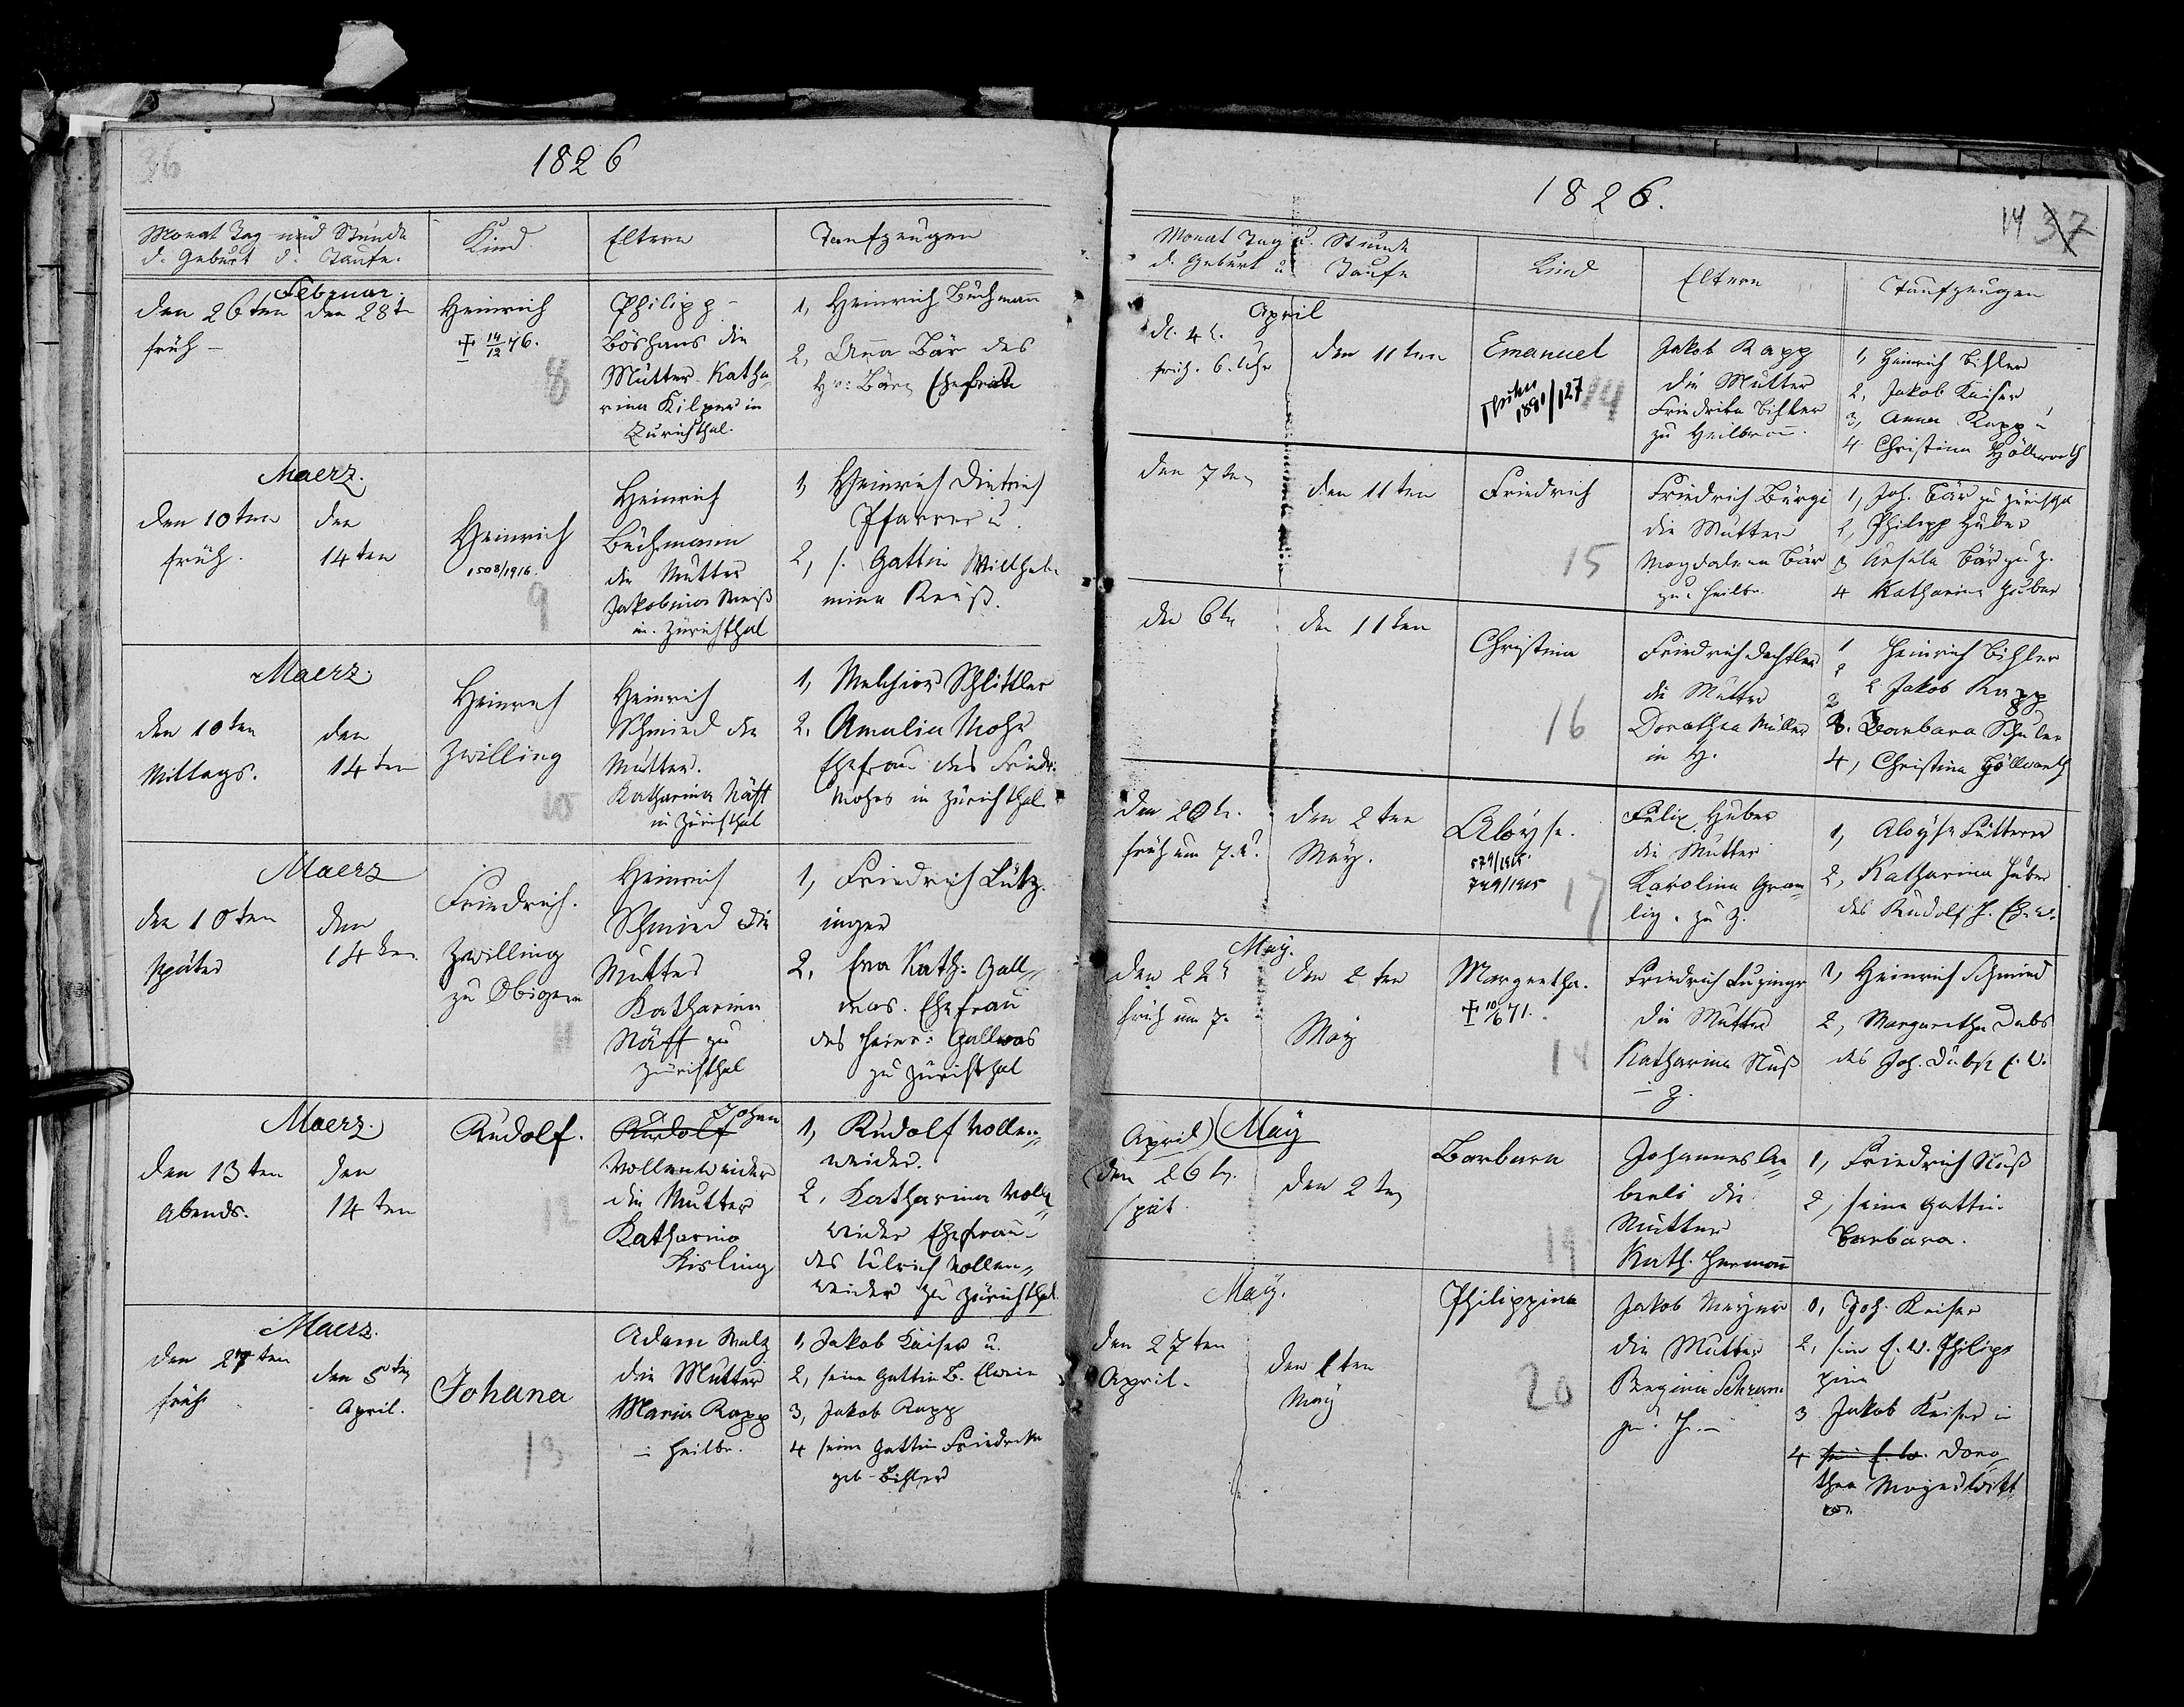 36
1826
Monat Tag und Stunde
d. Geburt d. Taufe.
Kind
Eltern
Taufzeugen
Februar.
den 26ten
früh –
den 28t
Heinrich
14/12 76.
8
Philipp
Böshans die
Mutter Katha
rina Kilper in
Zürichthal.
1, Heinrich Buchmann
2, Anna Bär des
Hr: Bärs Ehefrau
Maerz.
den 10ten
früh.
den
14ten
Heinrich
1508/1916.
9
Heinrich
Buchmann
die Mutter
Jakobina Weiß
in Zürichthal
1 Heinrich Dietrich
Pfarrer u.
2, s. Gattin Wilhel
mina Reuß.
Maerz.
den 10ten
Mittags.
den
14ten
Heinrich
Zwilling
10
Heinrich
Schmied die
Mutter.
Katharina Näff
in Zürichthal
1, Melchior Schlittler
2. Amalia Mohr
Ehefrau des Friedr:
Mohrs in Zürichthal.
Maerz
den 10ten
später
den
14ten
Friedrich.
Zwilling
zu Obigem
11
Heinrich
Schmied die
Mutter
Katharina
Näff zu
Zürichthal
1, Friedrich Lutz
inger
2. Eva Kath: Gall
was. Ehefrau
des Heinr: Gallwas
zu Zürichthal
Maerz.
den 13ten
Abends.
den
14ten
Rudolf.
12
Rudolf Johan
Vollenweider
die Mutter
Katharina
Aisling
1, Rudolf Vollen
weider.
2, Katharina Voll
weider Ehefrau
des Ulrich Vollen
weider zu Zürichthal
Maerz.
den 27ten
früh
den 5ten
April.
Johana
13
Adam Walz
die Mutter
Maria Rapp
i Heilbr.
1, Jakob Kaiser u.
2, seine Gattin B. Elwein
3, Jakob Rapp
4 seine Gattin Friedrika
geb. Bihler
1826.
14 37
Monat Tag u. Stunde
d. Geburt u. Taufe
Kind
Eltern
Taufzeugen
April
d. 4t.
früh. 6. Uhr
den 11ten
Emanuel
1891/127
14
Jakob Rapp
die Mutter
Friedrika Bihler
zu Heilbron.
1, Heinrich Bihler
2, Jakob Kaiser
3, Anna Rapp u
4 Christina Höllwarth
den 7ten
den 11ten
Friedrich
15
Friedrich Bürgi
die Mutter
Magdalena Bär
zu Heilbr.
1, Joh. Bär zu Zürichthal
2, Philipp Huber
3 Ursula Bär zu Z.
4 Katharina Huber
den 6ten
den 11ten
Christina
16
Friedrich Dechtler
die Mutter
Dorothea Müller
in H.
1 Heinrich Bihler
2 Jakob Rapp
3. Barbara Schuler
4, Christina Höllwarth
den 20t.
früh um 7. U.
den 2ten
May.
Aloyse.
579/1915.
749/1915
17
Felix Huber
die Mutter
Karolina Gram
lig. zu Z.
1, Aloyse Futterer
2, Katharina Huber
des Rudolf H. Ehew.
May.
den 22t
früh um 7.
den 2ten
May
Margretha.
10/6 71.
18
Friedrich Luzinger
die Mutter
Katharina Nuß
i Z.
1, Heinrich Schmied
2, Margaretha Dubs
des Joh. Dubs E. W.
April) (May
den 26t.
spät
den 2ten
Barbara
19
Johannes Ae
berli die
Mutter
Kath. Hermann
1, Friedrich Nuß
2, seine Gattin
Barbara.
May.
den 27ten
April.
den 2ten
May
Philippina
20
Jakob Mayer
die Mutter
Regina Schram
zu H. –
1, Joh. Keiser
2, sein E. W. Philip
pina
3 Jakob Keiser in
4 sein E. W. Doro
thea Mayer Witt
we.